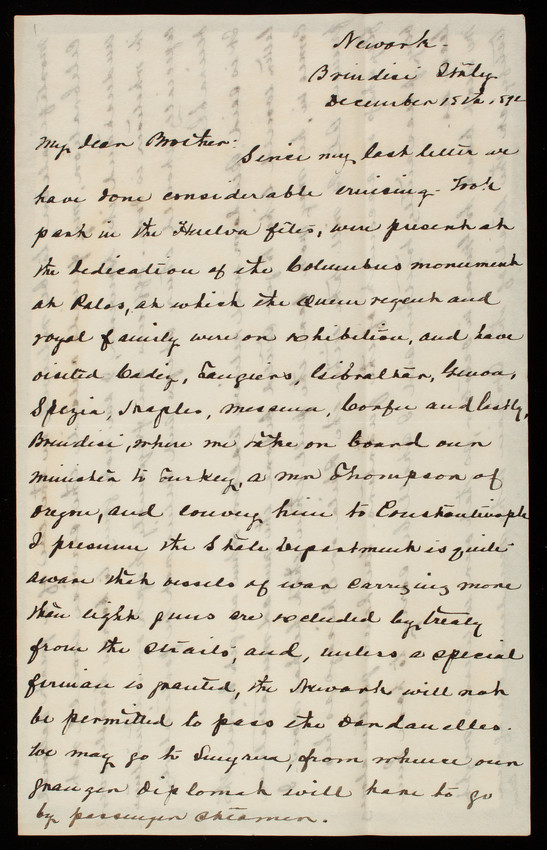 Newark -
Brindisi Italy
December 15th, 1892
My dear Brother:
Since my last letter we
have done considerable cruising - Took
part in the Huelva fêtes, were present at
the dedication of the Columbus monument
at Palos, at which the Queen regent and
royal family were on exhibition, and have
visited Cadiz, Tangiers, Gibraltar, Genoa,
Spezia, Naples, Messina, Corfu and lastly,
Brindisi, where we take on board our
minister to Turkey, a Mr Thompson of
Oregon, and convey him to Constantinople
I presume the State Department is quite
aware that vessels of war carrying more
than eight guns are excluded by treaty
from the straits, and, unless a special
firman is granted, the Newark will not
be permitted to pass the Dardanelles.
We may go to Smyrna, from whence our
granger diplomat will have to go
by passenger steamer.